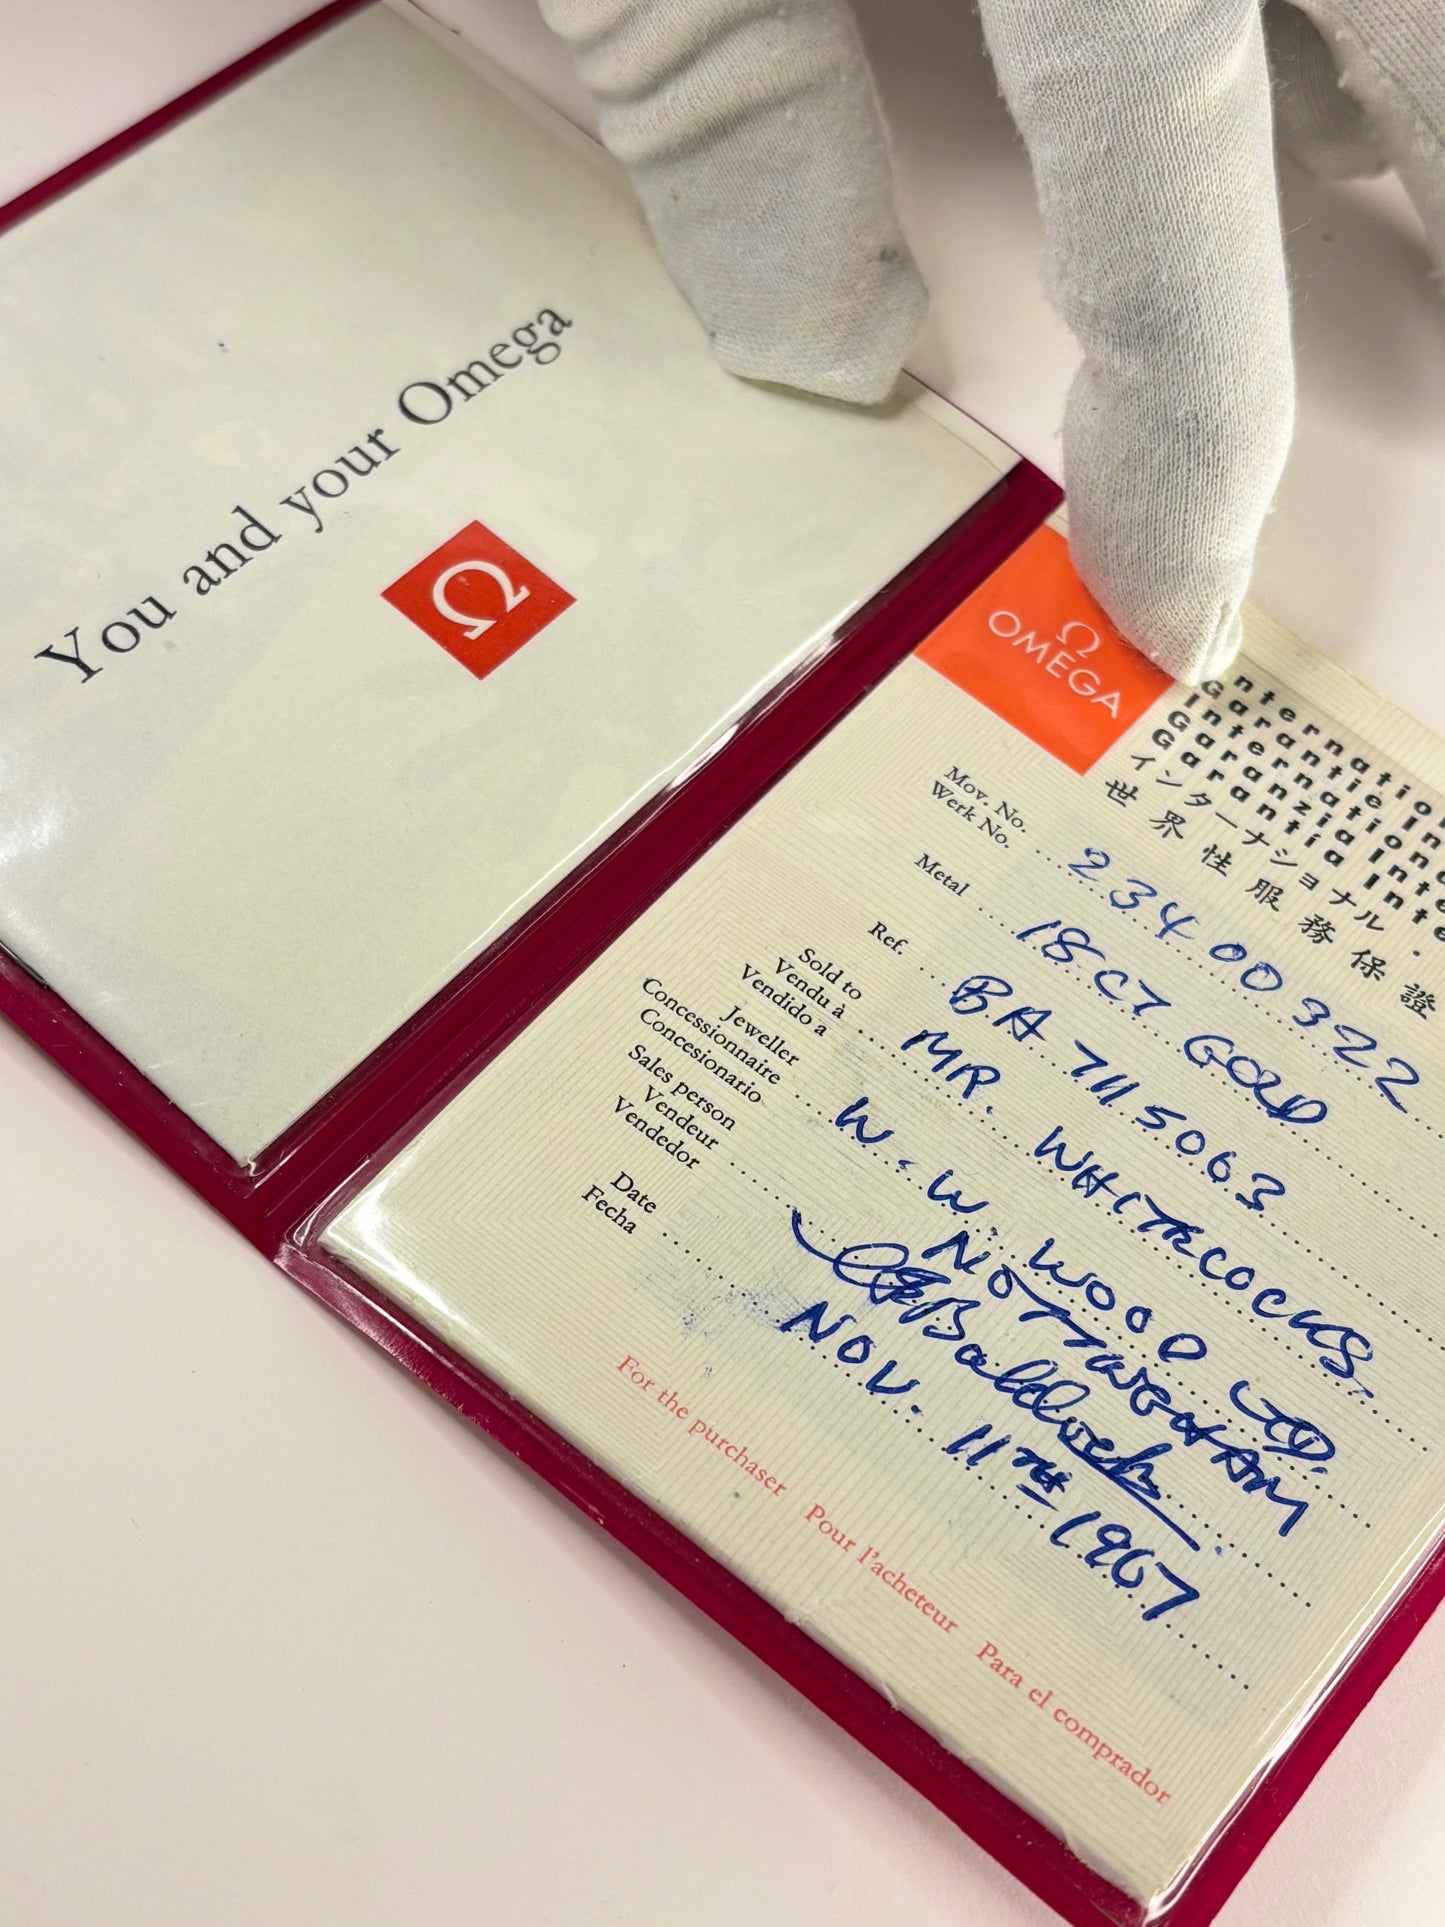 You and your Omega
Ω
Ω
OMEGA
Internatio
Garantie In
Internation
Garanzia Int
Garantia Inte
インターナショナル・
世界性服務保證
Mov. No.
Werk No. 23400322
Metal 18CT GOLD
Ref. BA 7115063
Sold to
Vendu à
Vendido a MR. WHITROCKS.
Jeweller
Concessionnaire
Concesionario W. W. WOOD LTD.
NOTTINGHAM
Sales person
Vendeur
Vendedor
Date
Fecha NOV. 11TH 1967
For the purchaser Pour l'acheteur Para el comprador